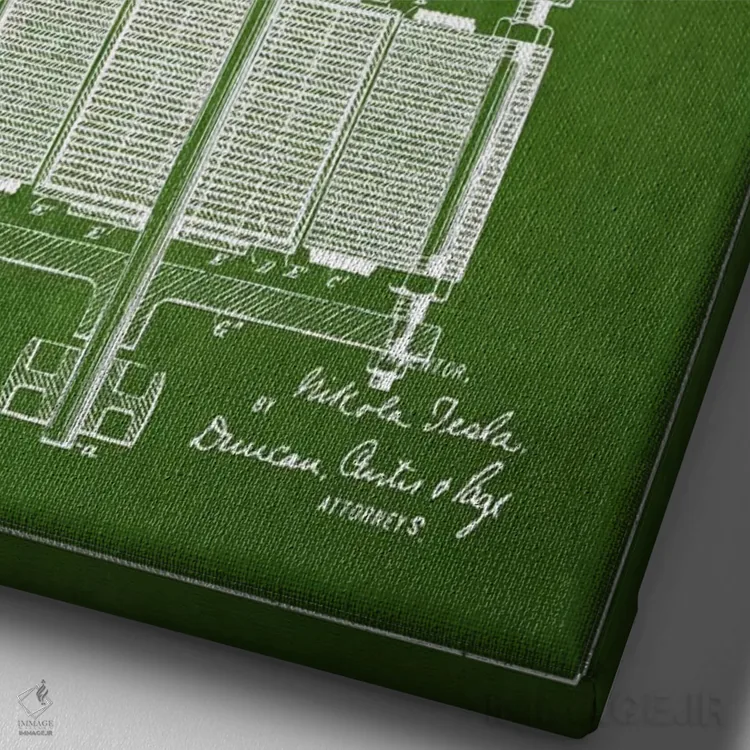 C'
G"
a
NTOR,
Nikola Tesla,
BY
Duncan, Curtis & Page
ATTORNEYS.
IMMAGE
IMMAGE.IR
IMMAGE.IR